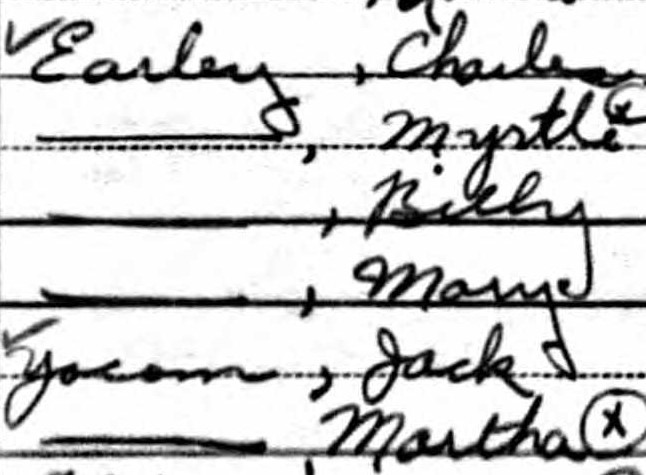 ✓ Earley, Charles
——, Myrtle ⓧ
——, Billy
——, Mary
✓ Yocom, Jack
——, Martha ⓧ